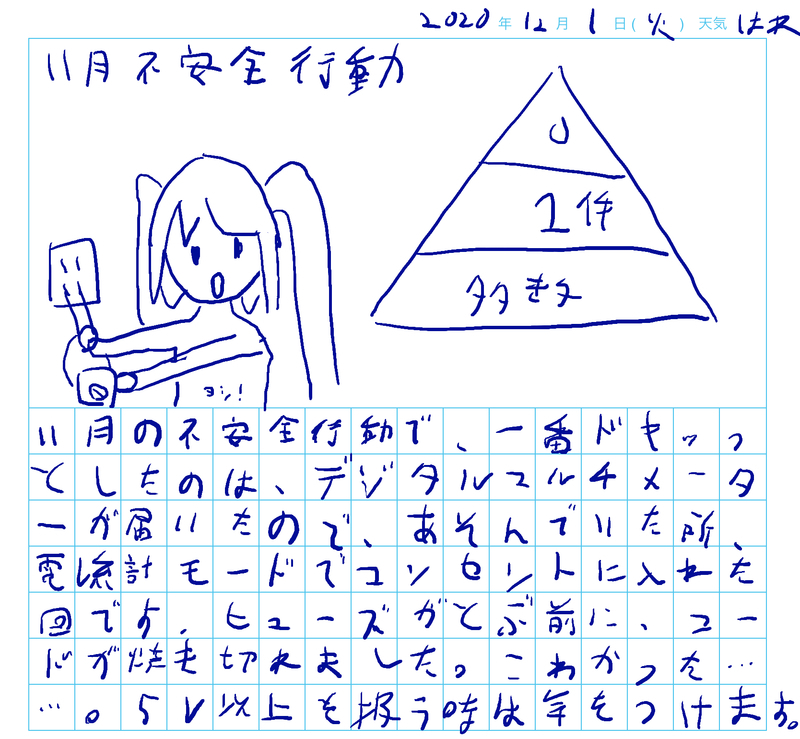 2020年12月1日(火) 天気 はれ
11月不安全行動
0
1件
タタきタ
ヨシ!
11月の不安全行動で、一番ドキッっ
としたのは、デジタルマルチメータ
ーが届いたので、あそんでいた所、
電流計モードでコンセントに入れた
回です。ヒューズがとぶ前に、コー
ドが焼き切れました。こわかった…
…。5V以上を扱う時は気をつけます。